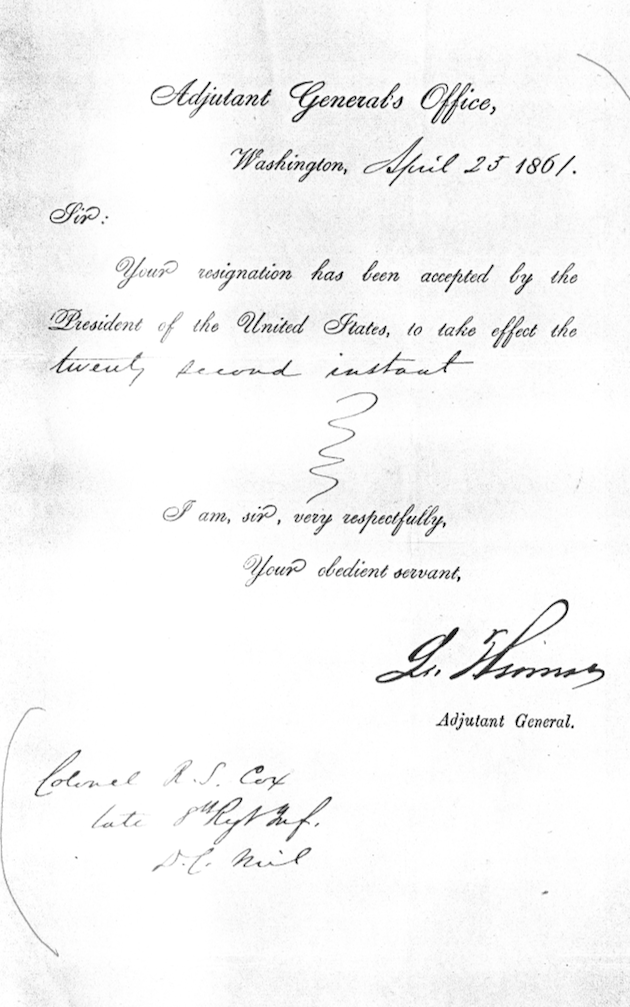 Adjutant General's Office,
Washington, April 25 1861.
Sir:
Your resignation has been accepted by the
President of the United States, to take effect the
twenty second instant
I am, sir, very respectfully,
Your obedient servant,
L. Thomas
Adjutant General.
Colonel R. S. Cox
late 8th Regt Inf.
D. C. Mil